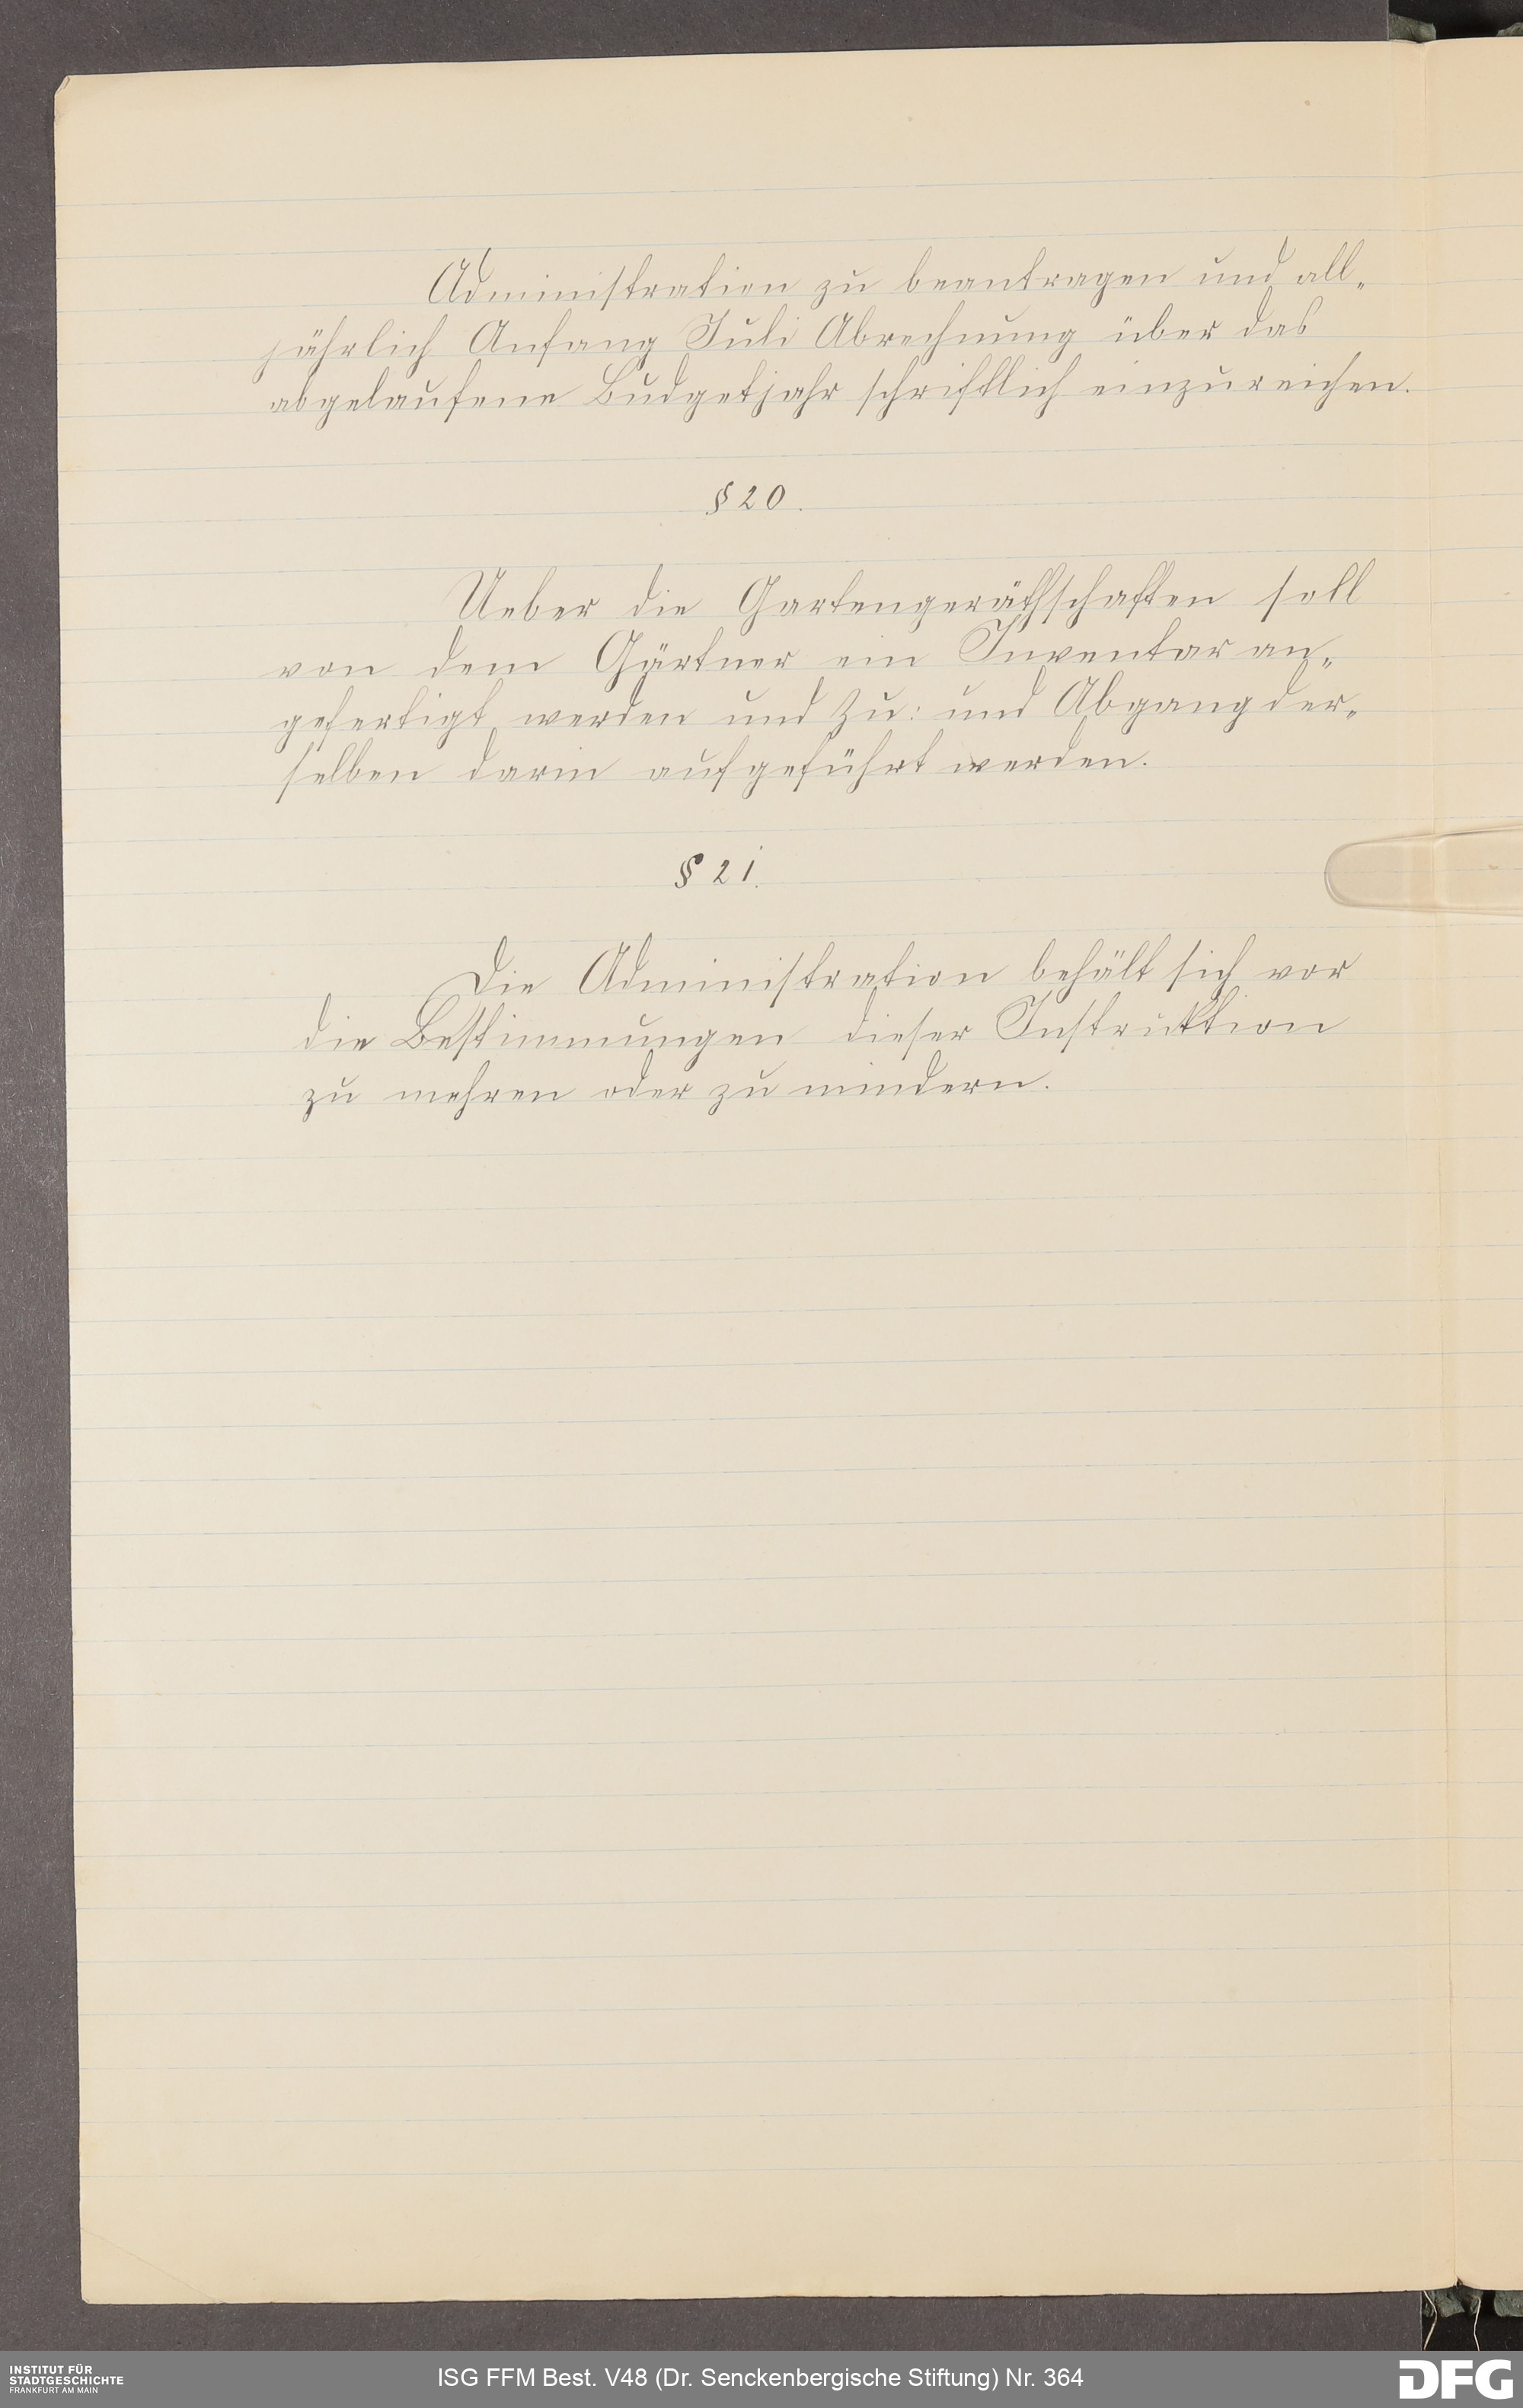 Administration zu beantragen und all-
jährlich Anfang Juli Abrechnung über das
abgelaufene Budgetjahr schriftlich einzureichen.
§ 20.
Ueber die Gartengeräthschaften soll
von dem Gärtner ein Inventar an-
gefertigt werden und Zu: und Abgang der-
selben darin aufgeführt werden.
§ 21.
Die Administration behält sich vor
die Bestimmungen dieser Instruktion
zu mehren oder zu mindern.
INSTITUT FÜR
STADTGESCHICHTE
FRANKFURT AM MAIN
ISG FFM Best. V48 (Dr. Senckenbergische Stiftung) Nr. 364
DFG